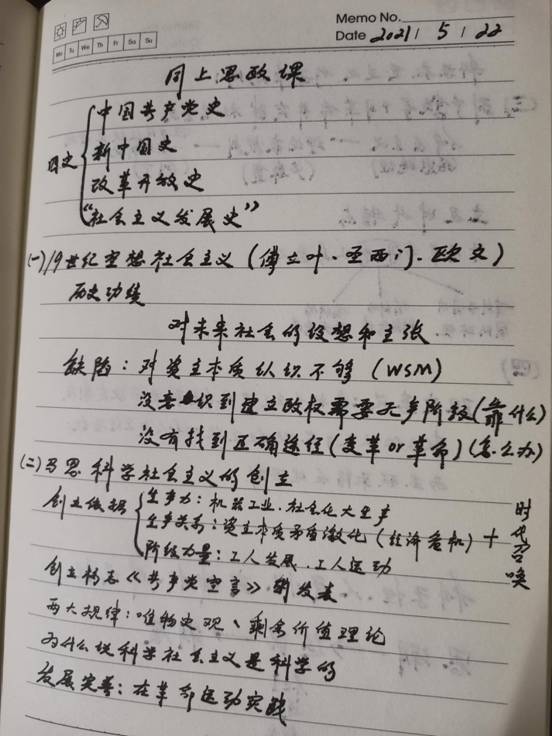 Memo No.
Mo Tu We Th Fr Sa Su
Date 2021 / 5 / 22
同上思政课
四史
中国共产党史
新中国史
改革开放史
“社会主义发展史”
(一)19世纪空想社会主义(傅立叶·圣西门·欧文)
历史功绩
对未来社会的设想和主张
缺陷：对资主本质认识不够(WSM)
没意识到建立政权需要无产阶级(靠什么)
没有找到正确途径(变革or革命)(怎么办)
(二)马恩科学社会主义的创立
创立依据
生产力：机器工业、社会化大生产
生产关系：资主本质矛盾激化(经济危机)
阶级力量：工人发展、工人运动
+ 时代召唤
创立标志《共产党宣言》的发表
两大规律：唯物史观、剩余价值理论
为什么说科学社会主义是科学的
发展完善：在革命运动实践